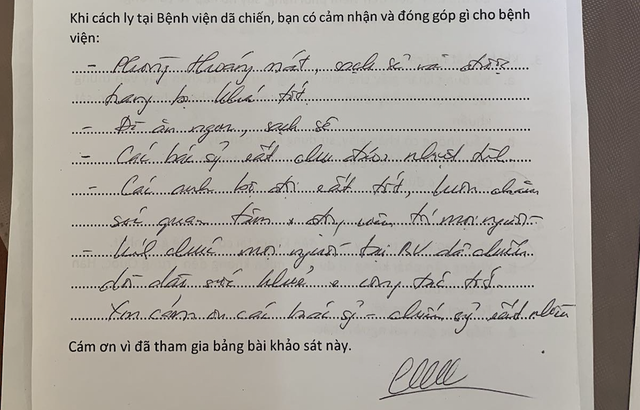 Khi cách ly tại Bệnh viện dã chiến, bạn có cảm nhận và đóng góp gì cho bệnh
viện:
- Phòng thoáng mát, sạch sẽ và được
trang bị khá tốt
- Đồ ăn ngon, sạch sẽ
- Các bác sỹ rất chu đáo, nhiệt tình
- Các anh bộ đội rất tốt, luôn chăm
sóc quan tâm mọi người
- chúc mọi người tại BV dã chiến
dồi dào sức khoẻ công tác tốt
Xin cám ơn các bác sỹ - chiến sỹ rất nhiều
Cám ơn vì đã tham gia bảng bài khảo sát này.